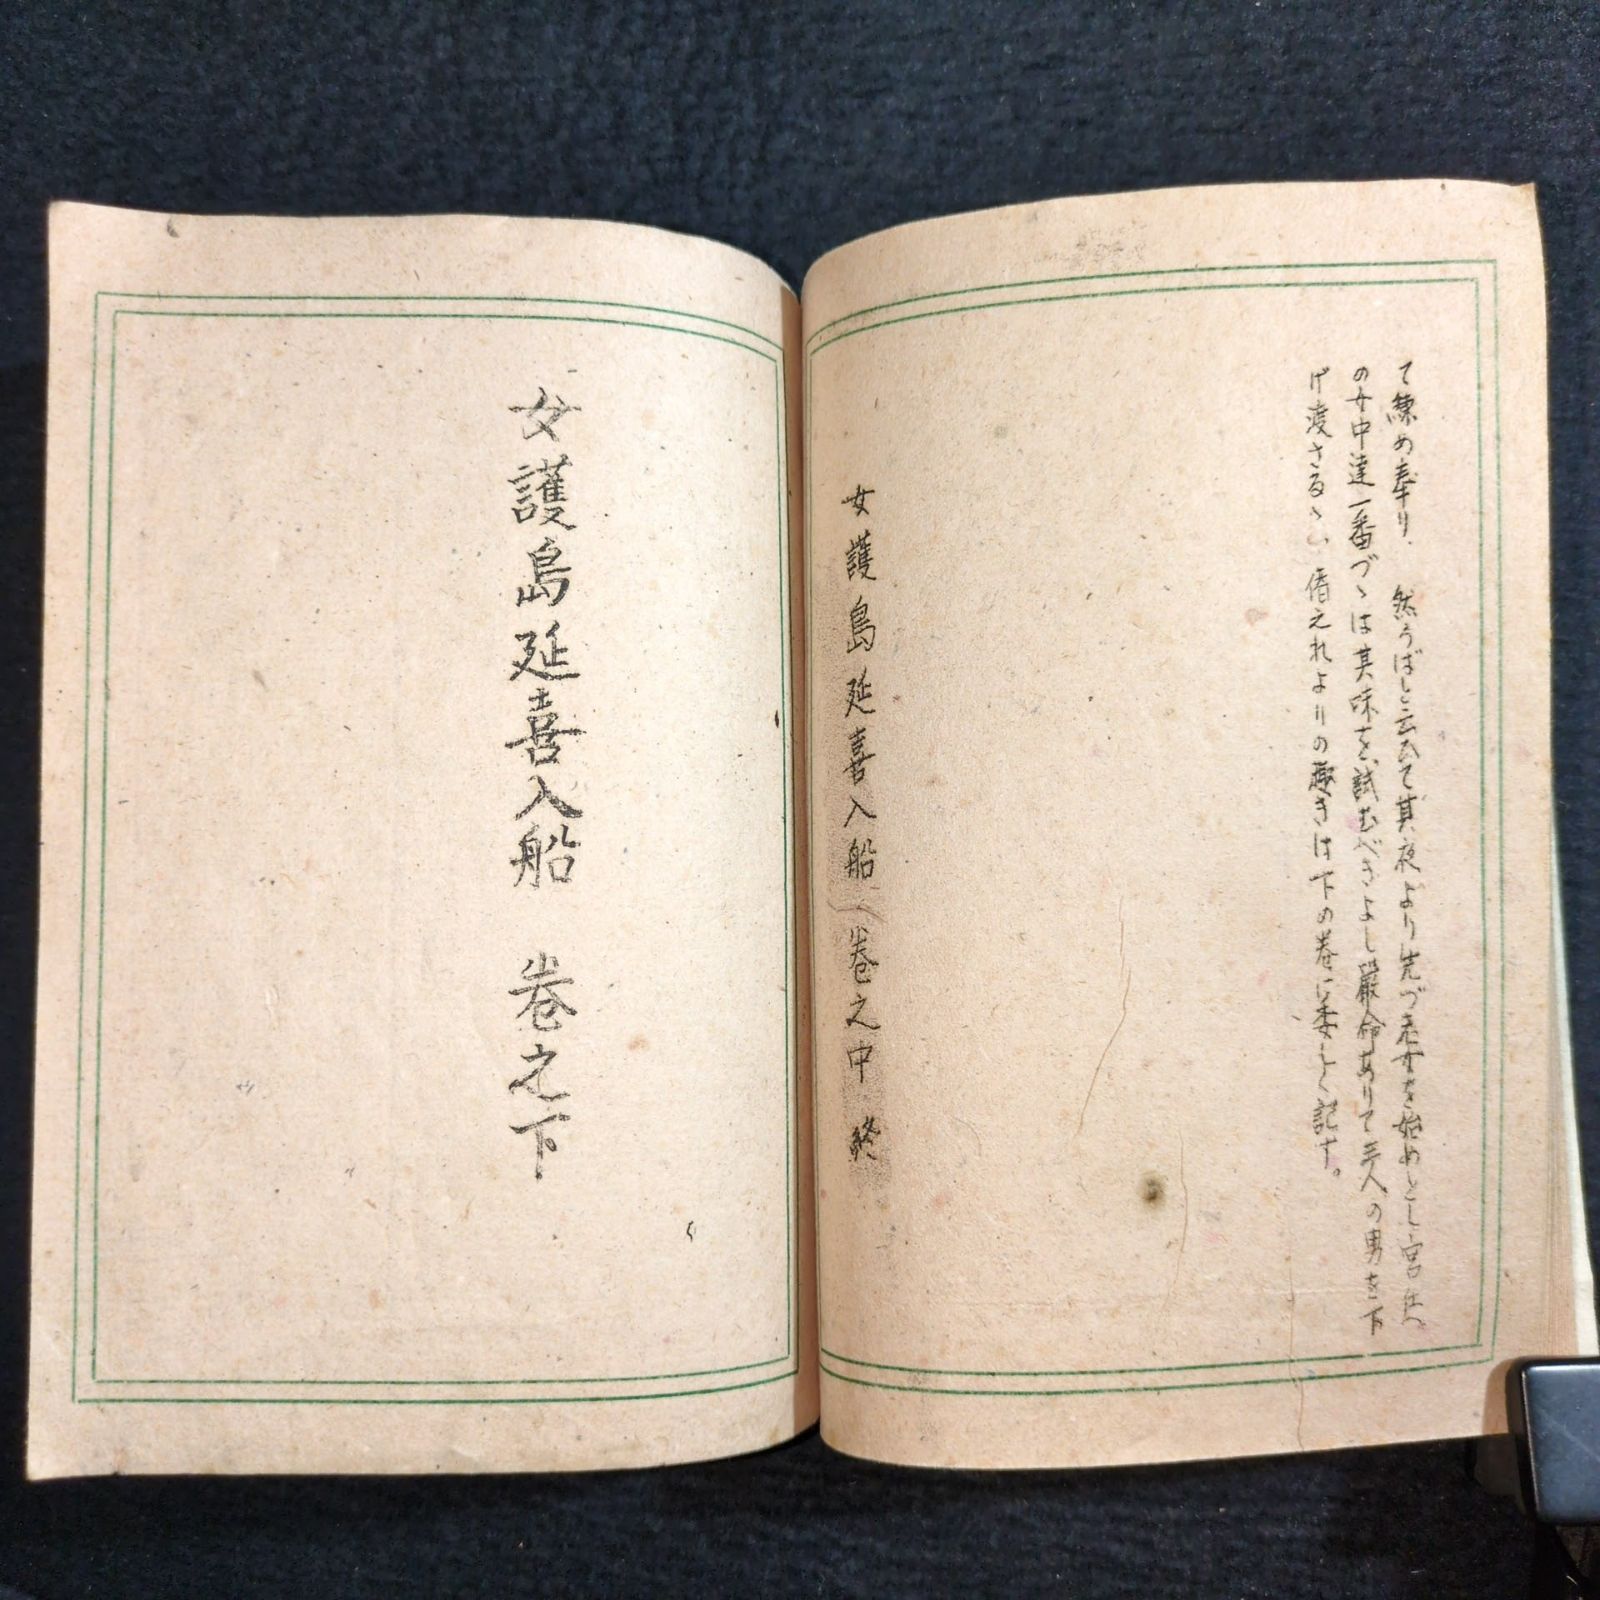 て諌め奉り、然らばと云ひて其夜より先づ老女を始めとし宮仕へ
の女中達一番づゝは其味を試むべきよし厳命ありて三人の男を下
げ渡さるゝ、偖これよりの趣きは下の巻に委しく記す。
女護島延喜入船 巻之中 終
女護島延喜入船 巻之下